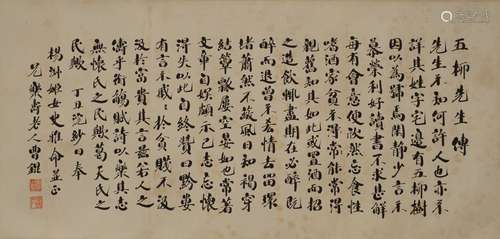 五柳先生傳
先生不知何許人也亦不
詳其姓字宅邊有五柳樹
因以為號焉閑靜少言不
慕榮利好讀書不求甚解
每有會意便欣然忘食性
嗜酒家貧不得常能常得
親舊知其如此或置酒而招
之造飲輒盡期在必醉既
醉而退曾不吝情去留環
堵蕭然不蔽風日短褐穿
結簞瓢屢空晏如也常著
文章自娛頗示己志忘懷
得失以此自終贊曰黔婁
有言不戚戚於貧賤不汲
汲於富貴其言茲若人之
儔乎銜觴賦詩以樂其志
無懷氏之民歟葛天氏之
民歟 丁丑 日奉
女史雅命並正
樂壽老人曾